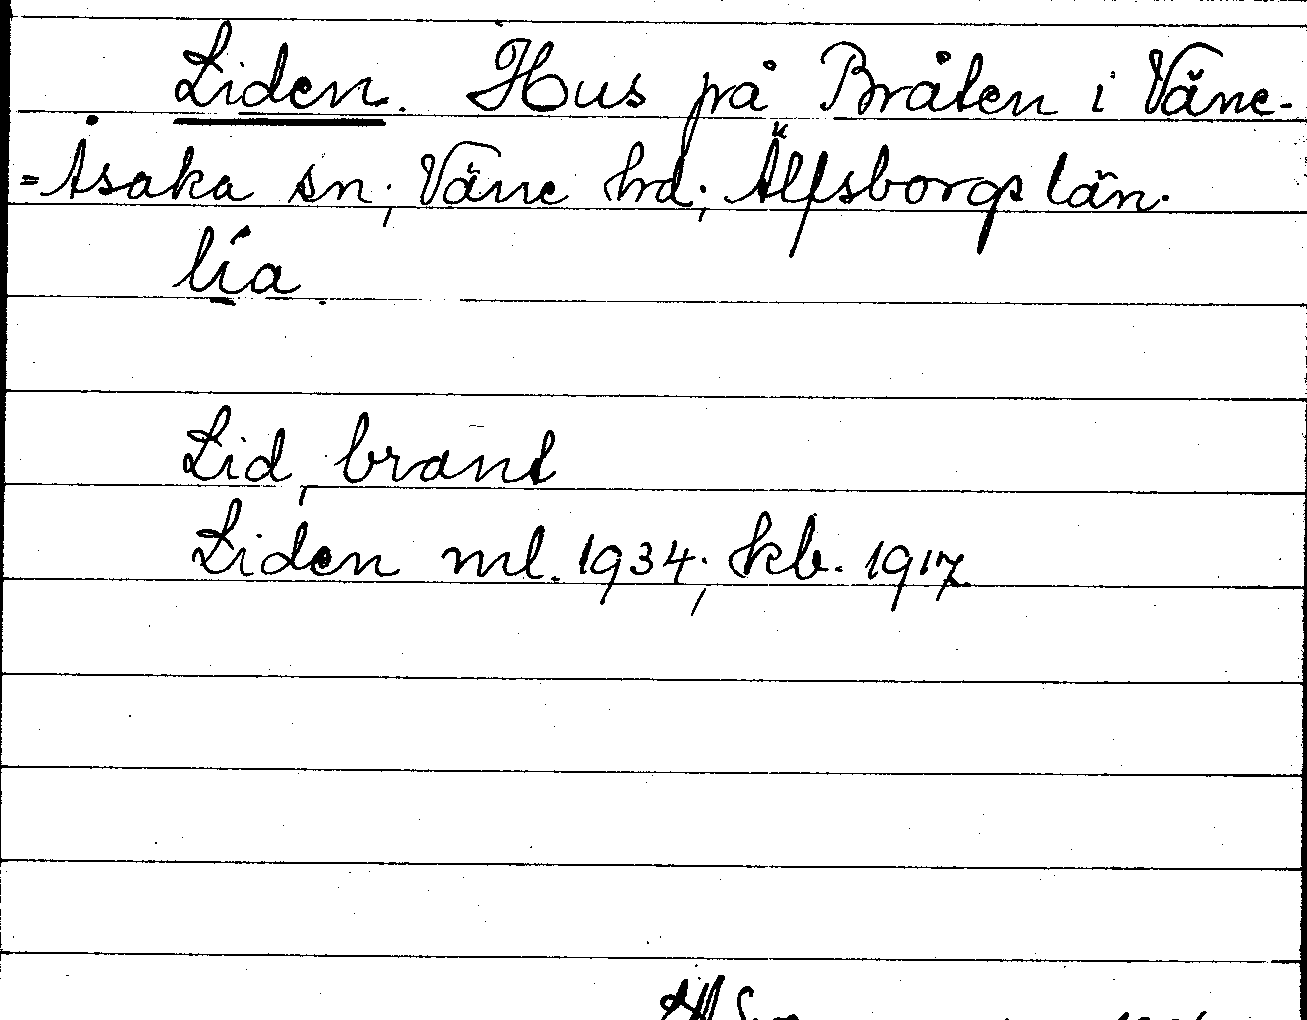 Liden. Hus på Bråten i Väne-
=Åsaka sn; Väne hd; Älfsborgs län.
lía.
Lid, brant
Liden ml. 1934; kb. 1917.